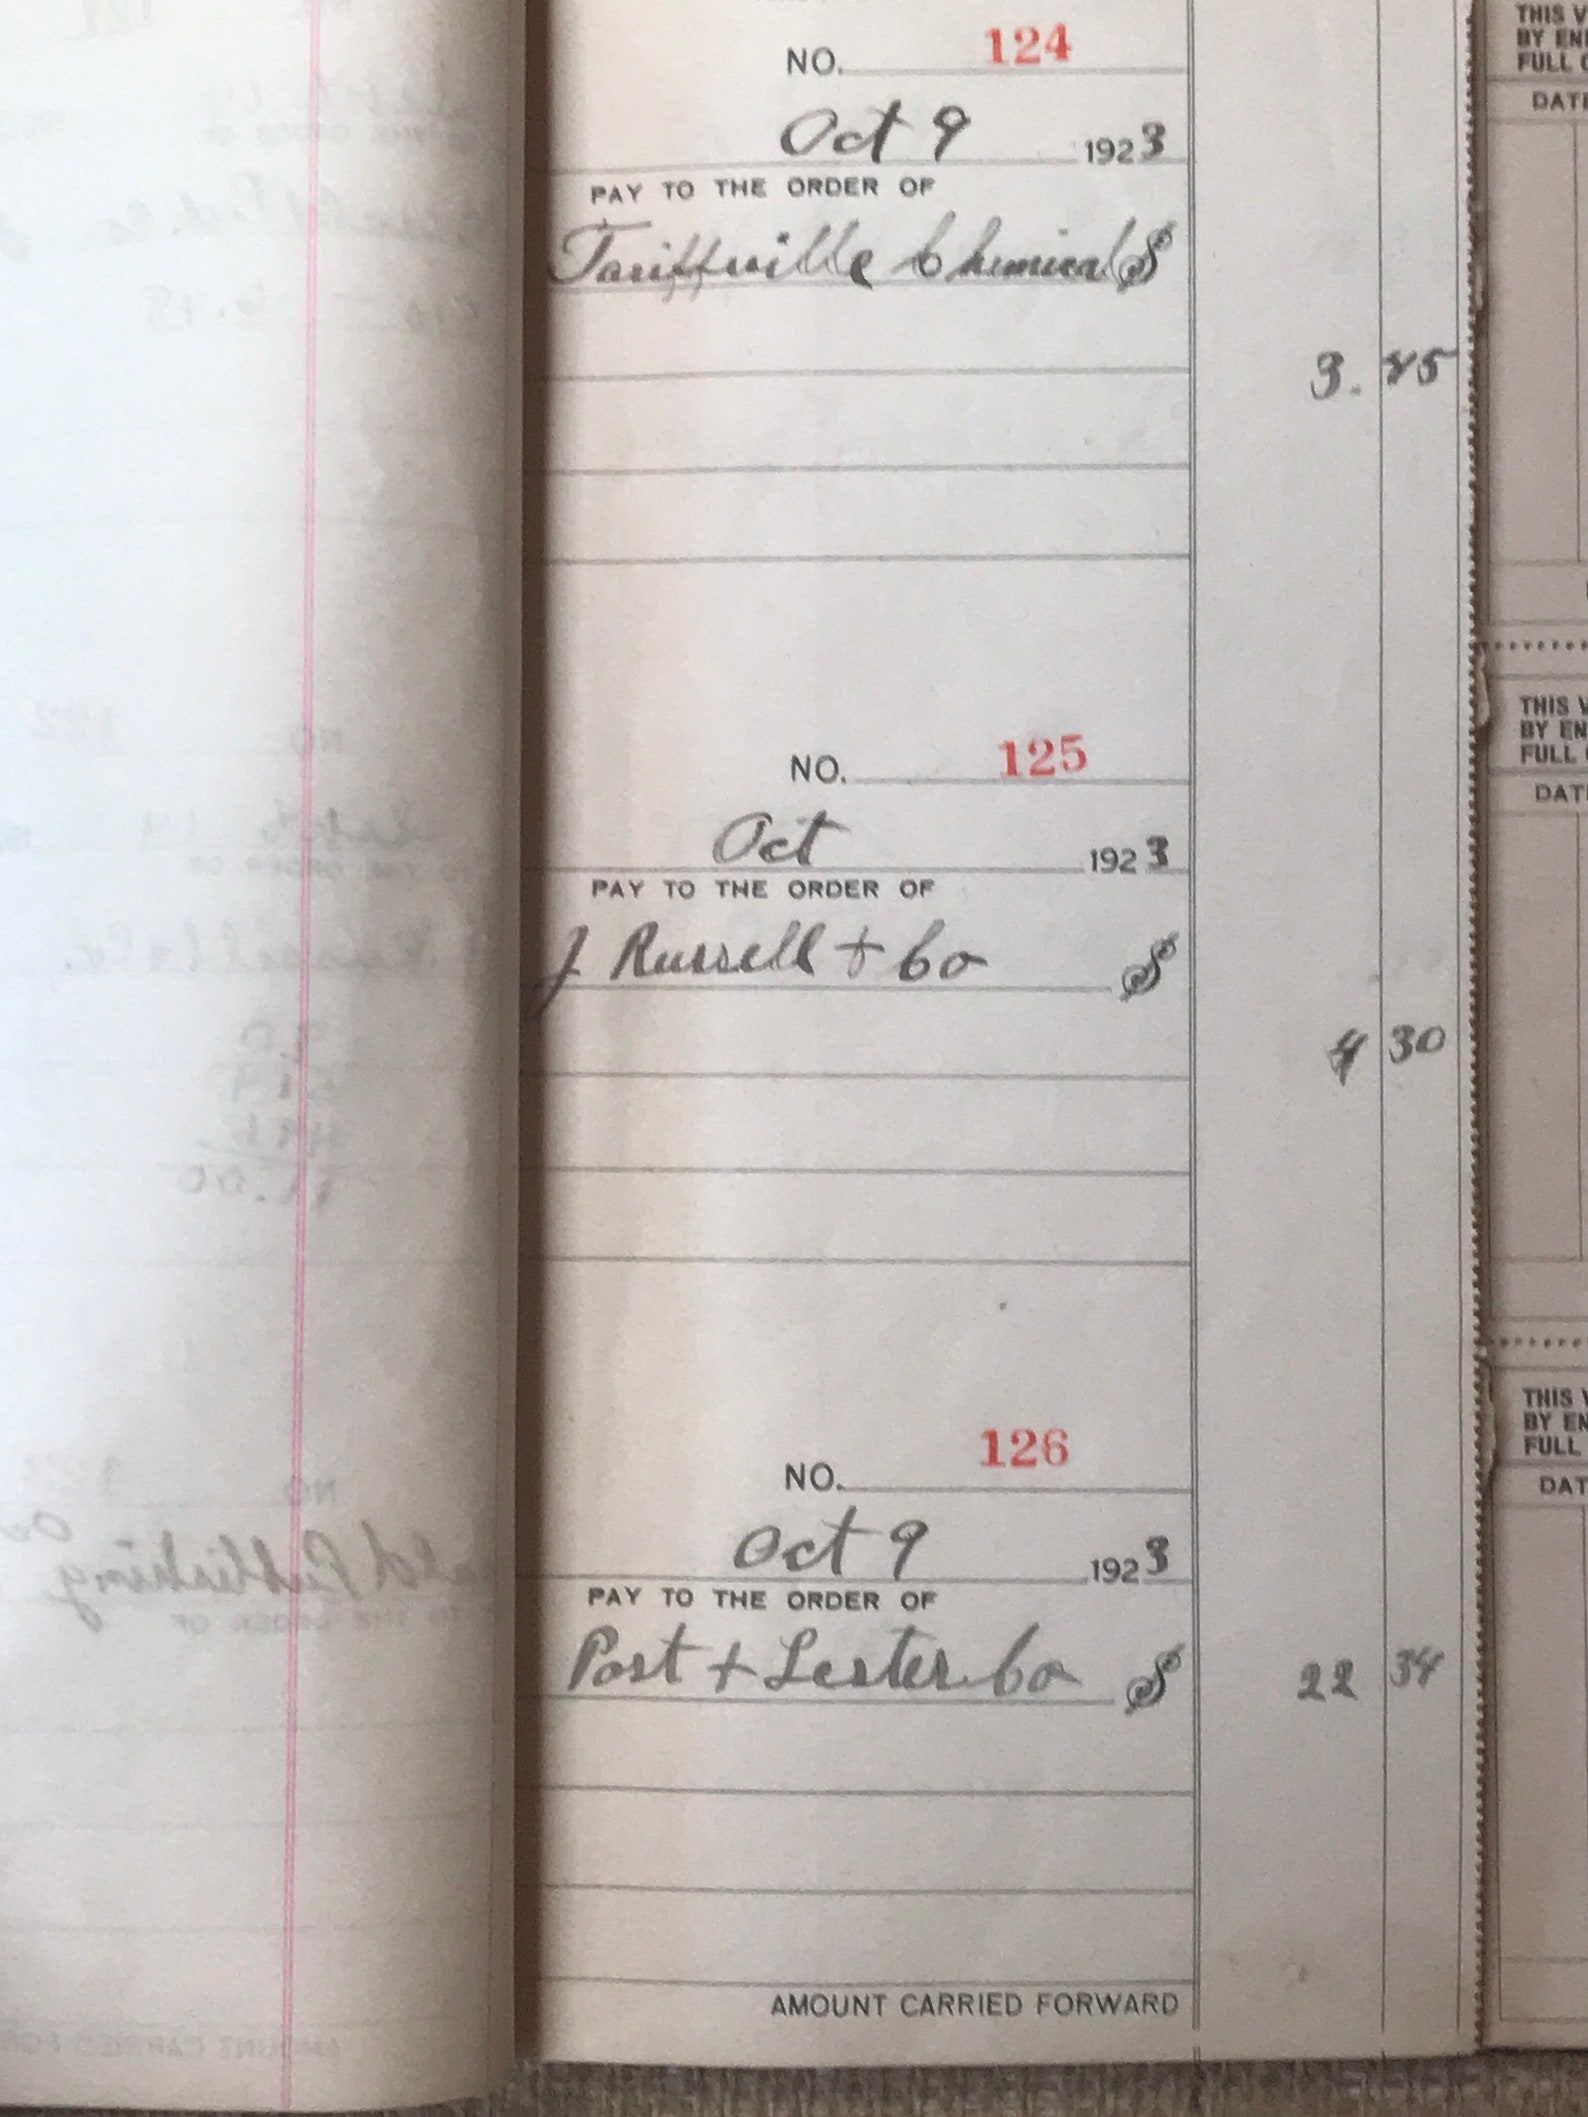 NO. 124
Oct 9 1923
PAY TO THE ORDER OF
Tariffville Chemical $
3. 25
NO. 125
Oct 1923
PAY TO THE ORDER OF
J Russell + Co $
4 30
NO. 126
Oct 9 1923
PAY TO THE ORDER OF
Post + Lester Co $ 22 34
AMOUNT CARRIED FORWARD
THIS V
BY EN
FULL
DATE
THIS V
BY EN
FULL
DATE
THIS V
BY EN
FULL
DAT